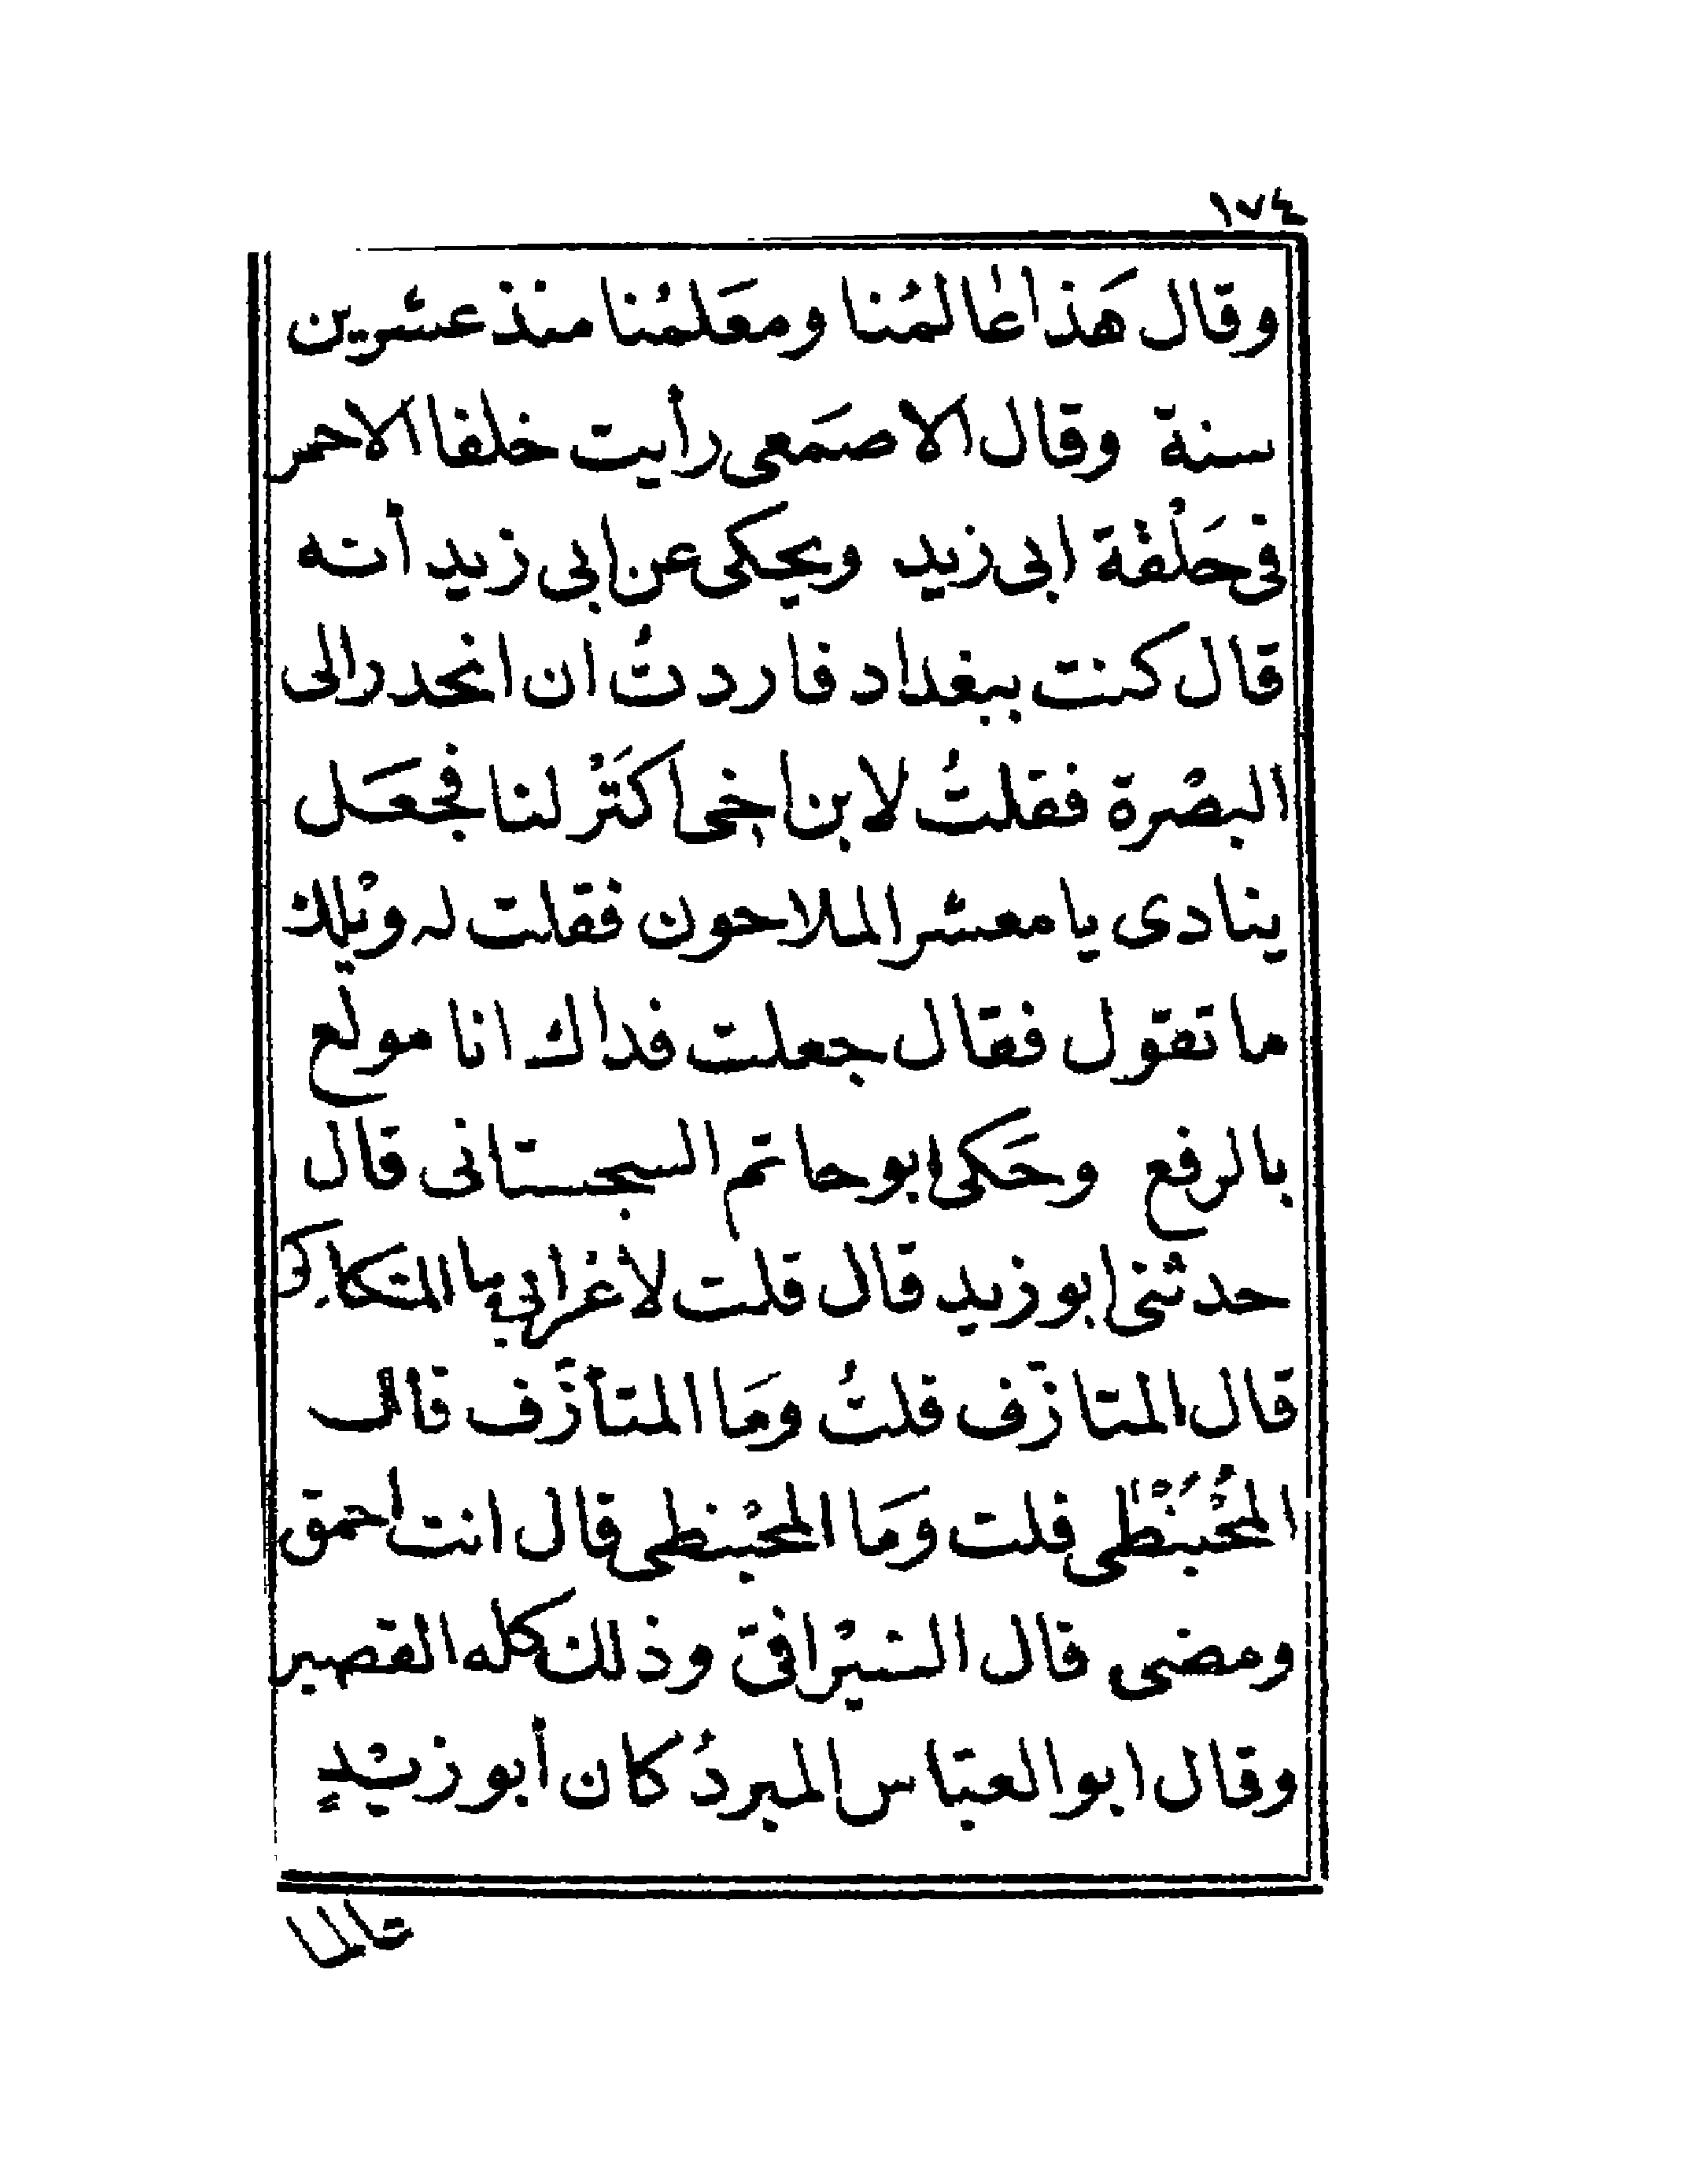 ١٧٤
وقال هَذا عالمُنا ومعَلمُنا منذ عشرين
سنة وقال الاصمَعى رأيت خلفا الاحمر
فى حَلْقة ابى زيد ويحكى عن ابى زيد أنه
قال كنت ببغداد فاردتُ ان انحدر الى
البصْرة فقلتُ لابن اخى اكتَرْ لنا فجعَل
ينادى يا معشر الملاحون فقلت له ويْلك
ما تقول فقال جعلت فداك انا مولع
بالرفع وحَكى ابو حاتم السجستانى قال
حدثنى ابو زيد قال قلت لأعرابى ما المتكاكى
قال المتازّف قلتُ ومَا المتأزّف قال
المحُبَنْطى قلت ومَا المحبْنطى قال انت احمق
ومضى قال السيْرافى وذلك كله القصير
وقال ابو العبّاس المبردُ كان أبو زيْدٍ